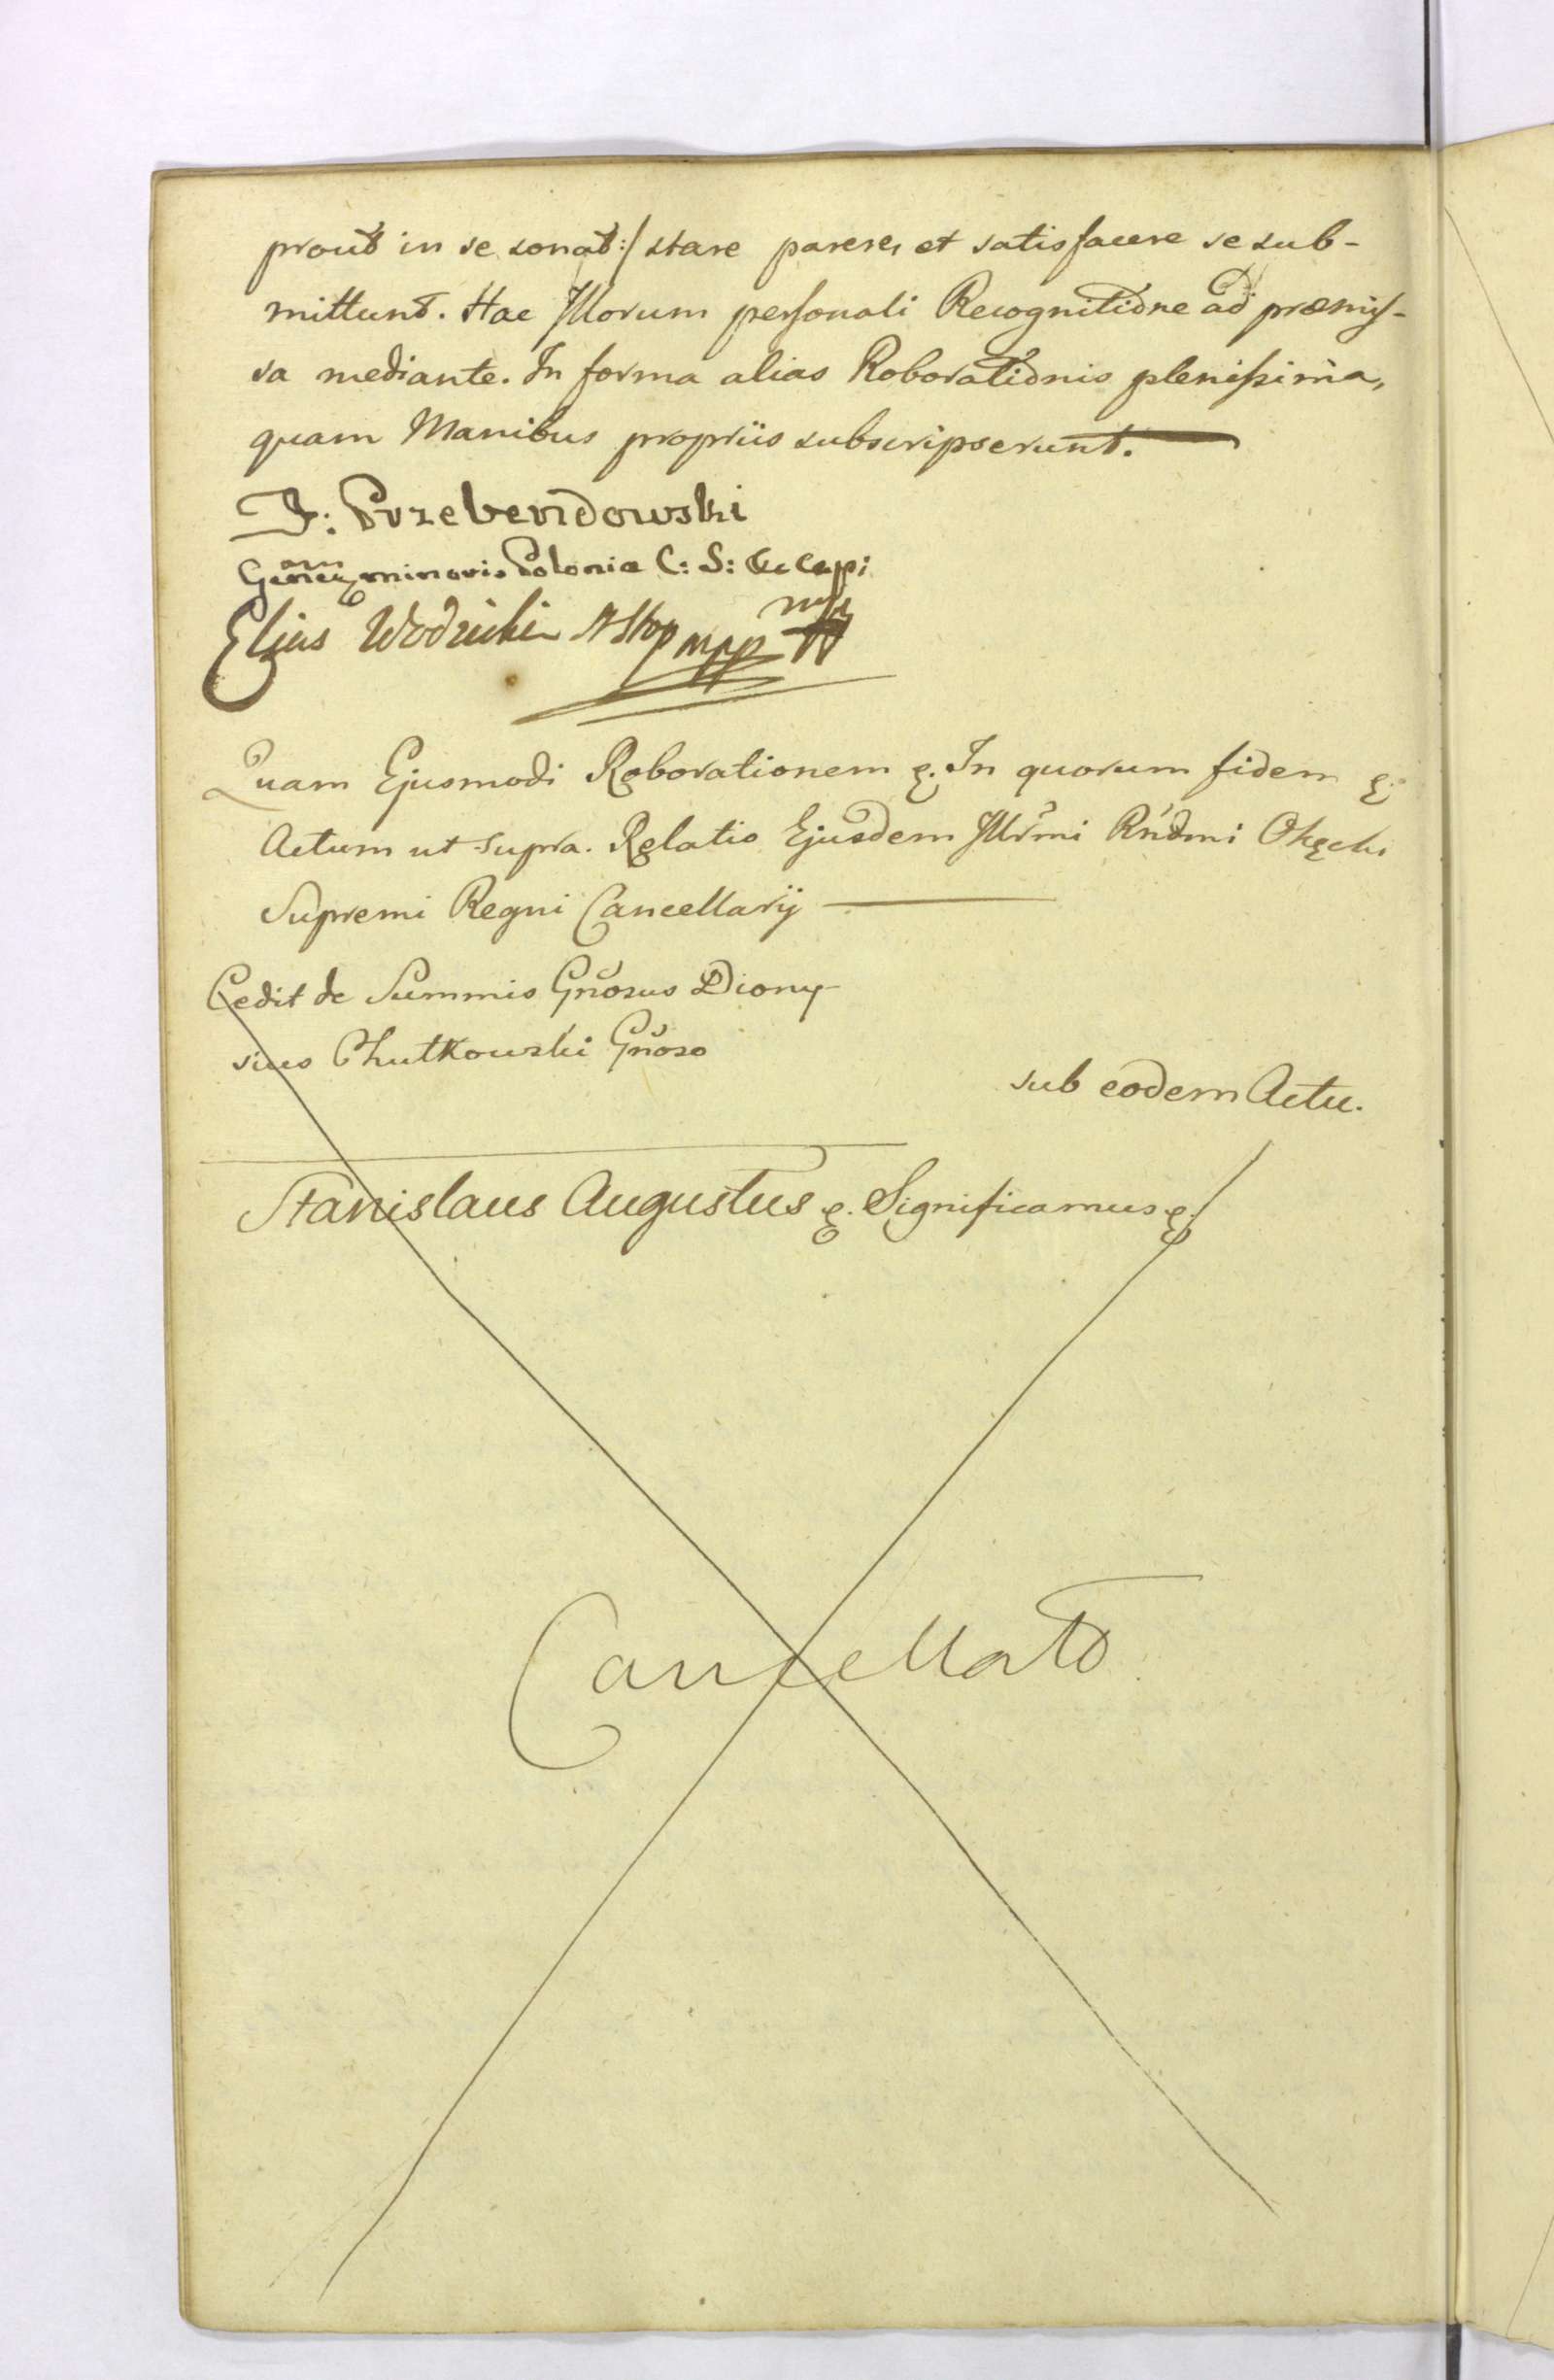 prout in se sonat:/ stare parere, et satisfacere se sub-
mittunt. Hac Illorum personali Recognitione ad præmis-
sa mediante. In forma alias Roborationis plenissima,
quam Manibus propriis subscripserunt.
J: Przebendowski
minoris Poloniæ C: S:
Elias Wodzicki mpp
Quam Ejusmodi Roborationem &. In quorum fidem &:
Actum ut supra. Relatio Ejusdem Illrmi Rndmi Okęcki
Supremi Regni Cancellarij
Cedit de Summis Gnosus Diony-
sius Chutkowski Gnoso
sub eodem Actu.
Stanislaus Augustus &. Significamus &.
Cancellato